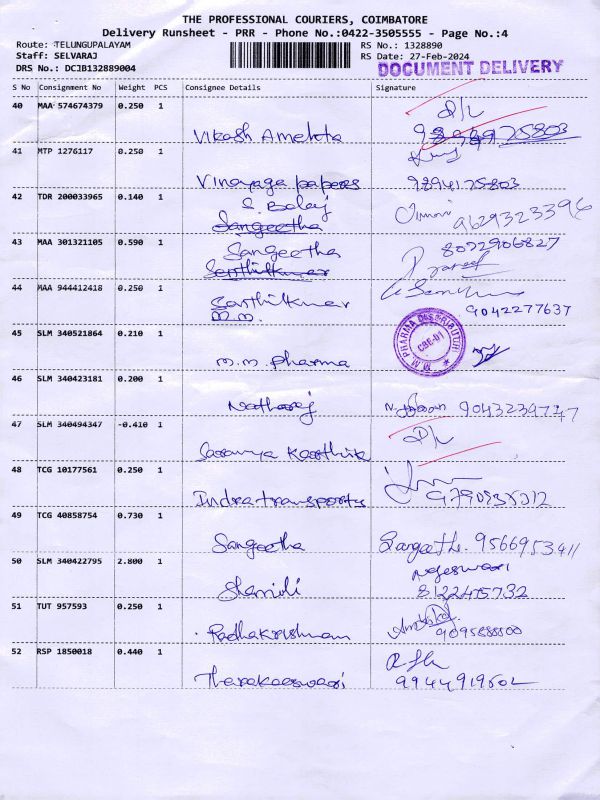 THE PROFESSIONAL COURIERS, COIMBATORE
Delivery Runsheet - PRR - Phone No.:0422-3505555 - Page No.:4
Route: TELUNGUPALAYAM
RS No.: 1328890
Staff: SELVARAJ
RS Date: 27-Feb-2024
DRS No.: DCJB132889004
DOCUMENT DELIVERY
S No Consignment No Weight PCS Consignee Details Signature
40 MAA 574674379 0.250 1
D/L
Vikash Amekta
41 MTP 1276117 0.250 1
Vinayaga papers 9894175803
42 TDR 200033965 0.140 1
S. Balaj
Sangeetha
9629323396
43 MAA 301321105 0.590 1
Sangeetha
8072906827
Senthilkumar
44 MAA 944412418 0.250 1
Senthilkumar
9042277637
M.M.
45 SLM 340521864 0.210 1
M.M PHARMA DISTRIBUTOR
CBE-01
M.M. Pharma
46 SLM 340423181 0.200 1
Natharaj 9043239747
47 SLM 340494347 -0.410 1
D/L
Saranya Karthik
48 TCG 10177561 0.250 1
Indra transports
49 TCG 40858754 0.730 1
Sangeetha Sangeetha. 9566953411
50 SLM 340422795 2.800 1
Rajeswari
Shamili 8122475732
51 TUT 957593 0.250 1
Radhakrishnan
52 RSP 1850018 0.440 1
Tharakaeswari 9944919502